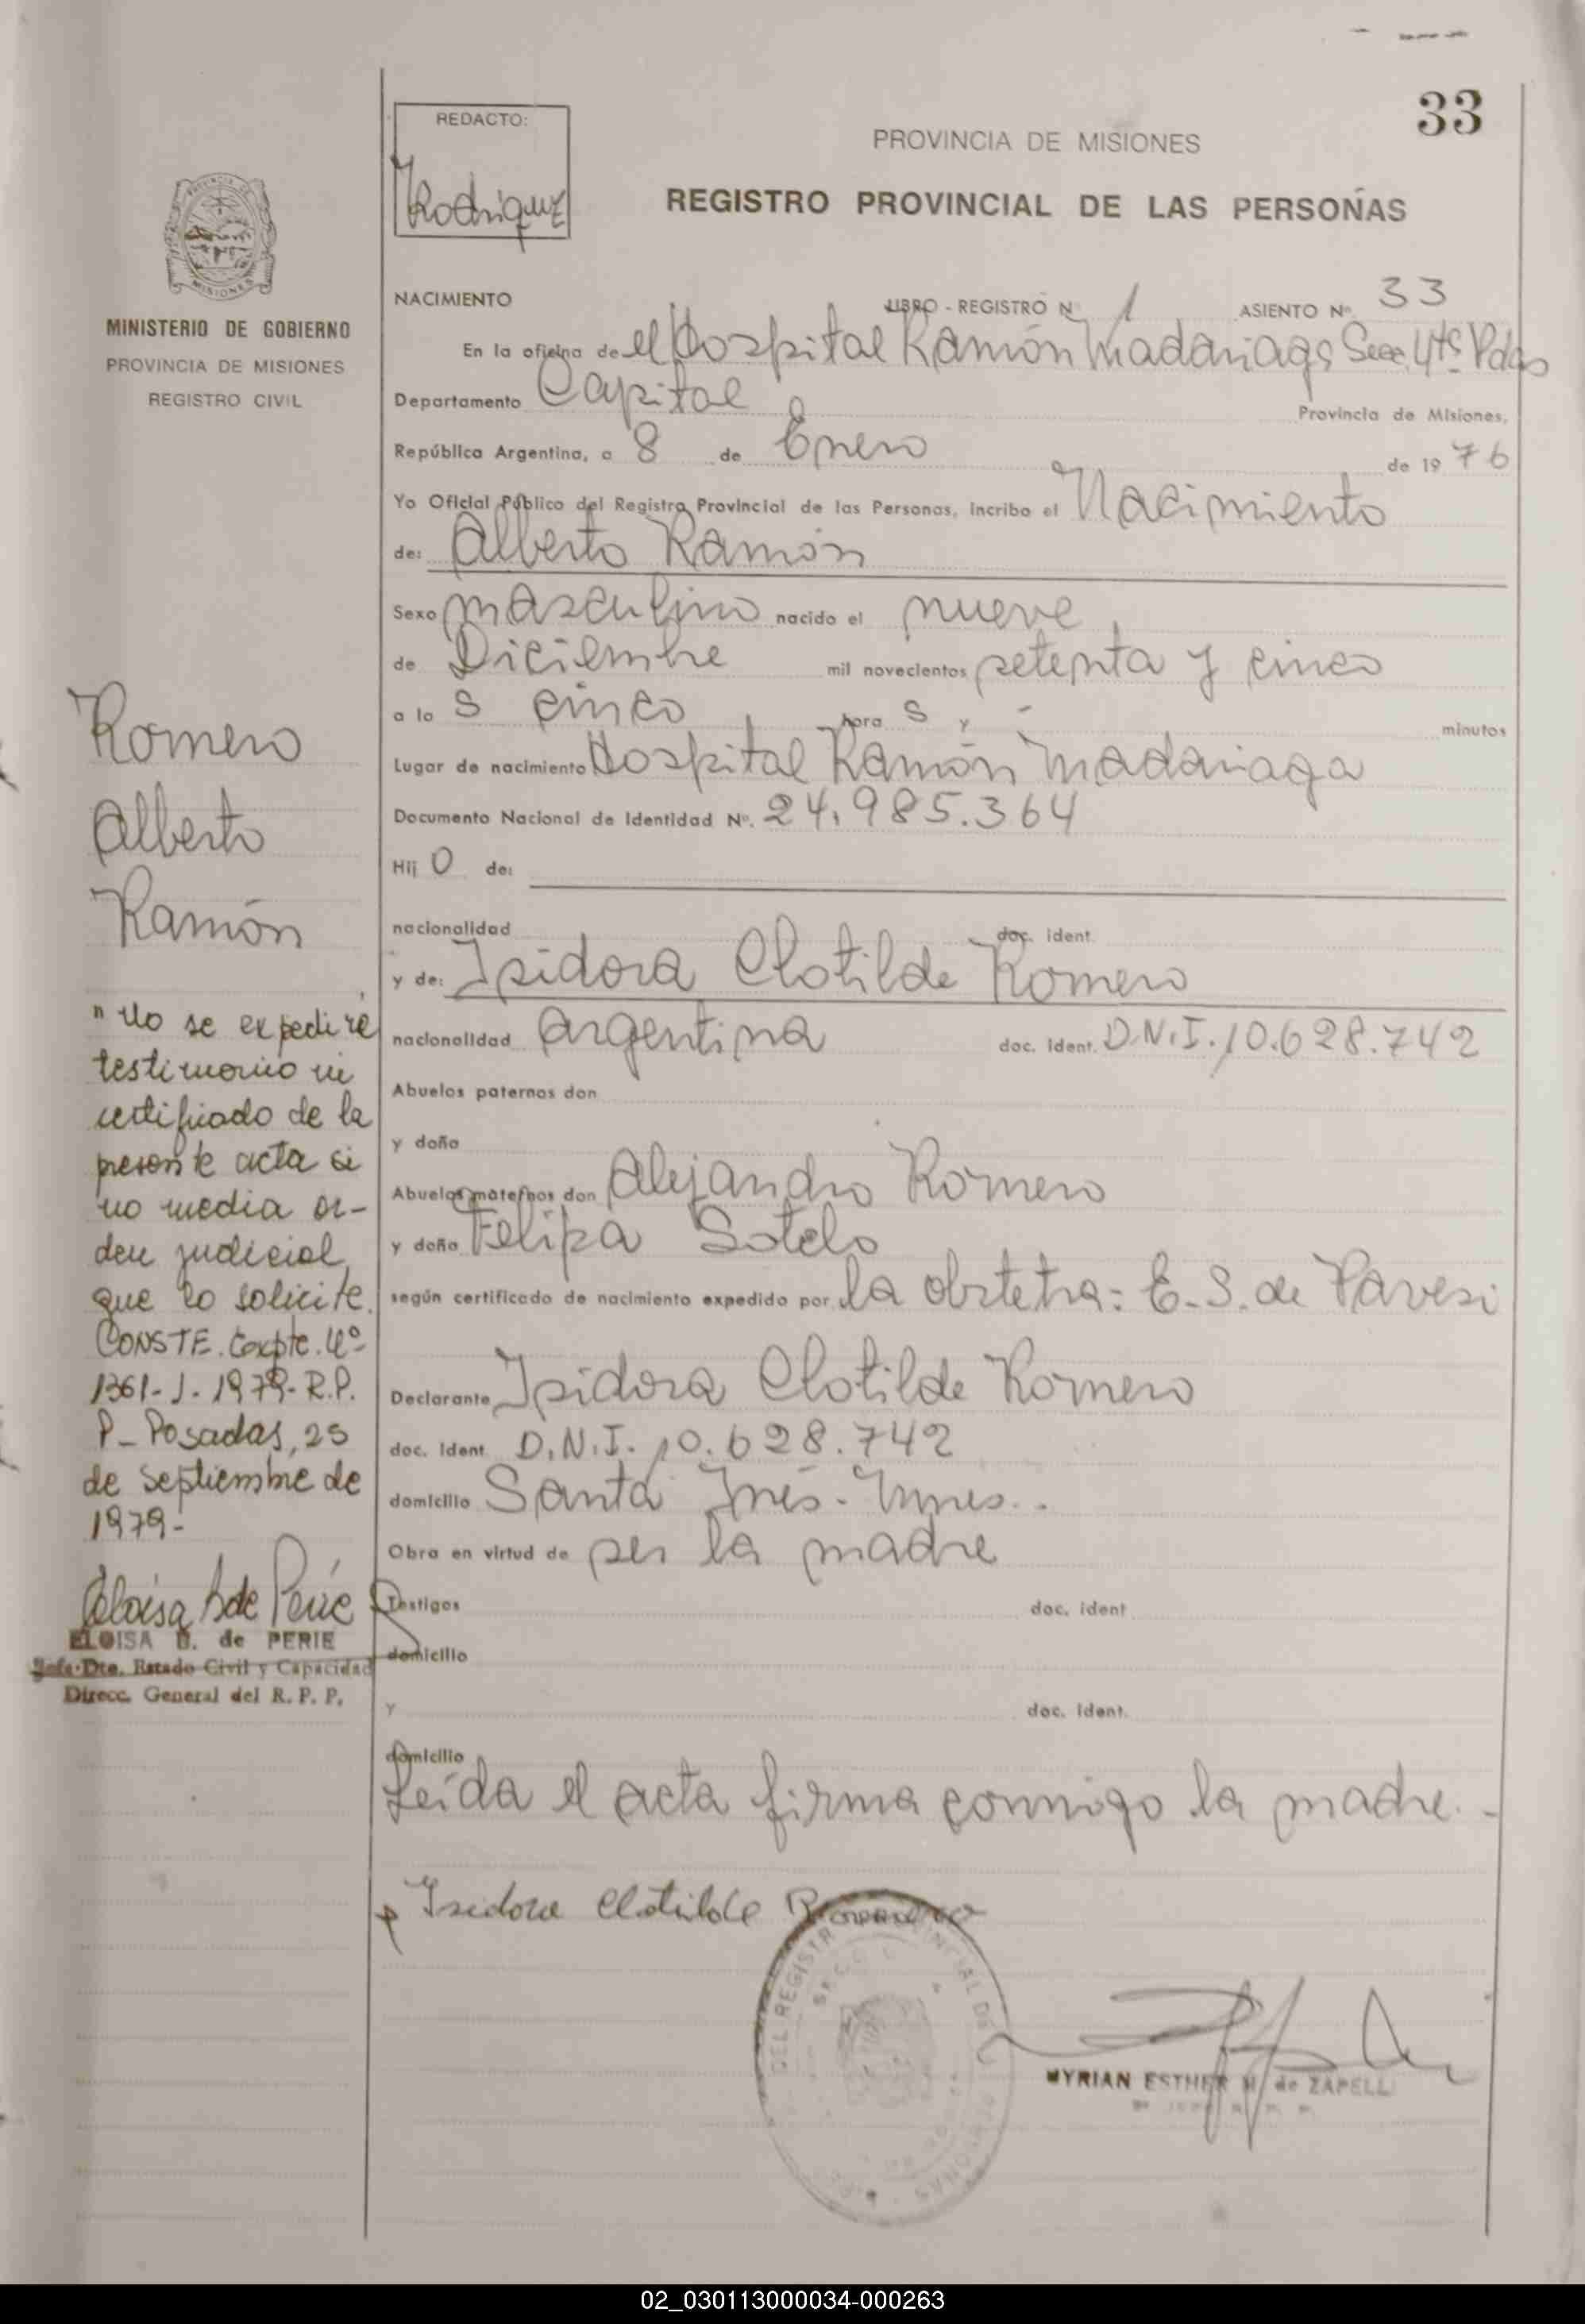 33
REDACTO:
Rodriguez
PROVINCIA DE MISIONES
REGISTRO PROVINCIAL DE LAS PERSONAS
MINISTERIO DE GOBIERNO
PROVINCIA DE MISIONES
REGISTRO CIVIL
NACIMIENTO LIBRO - REGISTRO Nº 1 ASIENTO Nº. 33
En la oficina de el Hospital Ramón Madariaga Secc. 4ta Pdas
Departamento Capital Provincia de Misiones,
República Argentina, a 8 de Enero de 1976
Yo Oficial Público del Registro Provincial de las Personas, incribo el Nacimiento
de: Alberto Ramón
Sexo masculino nacido el nueve
de Diciembre mil novecientos setenta y cinco
a las cinco horas y - minutos
Lugar de nacimiento Hospital Ramón Madariaga
Documento Nacional de Identidad Nº. 24.985.364
Hijo de:
nacionalidad doc. ident.
y de: Isidora Clotilde Romero
nacionalidad Argentina doc. ident. D.N.I. 10.628.742
Abuelos paternos don
y doña
Abuelos maternos don Alejandro Romero
y doña Felipa Sotelo
según certificado de nacimiento expedido por la obstetra: E. S. de Pavesi
Declarante Isidora Clotilde Romero
doc. ident. D.N.I. 10.628.742
domicilio Santa Inés -
Obra en virtud de ser la madre
Testigos doc. ident
domicilio
y doc. ident.
domicilio
Leída el acta firma conmigo la madre. -
Isidora Clotilde Romero
DEL REGISTRO PROVINCIAL DE
PERSONAS
MYRIAN ESTHER M. de ZAPELLI
Romero
Alberto
Ramón
"No se expedirá
testimonio ni
certificado de la
presente acta si
no media or-
den judicial
que lo solicite.
CONSTE. Expte. Nº
1361-J-1979-R.P.
P- Posadas, 25
de septiembre de
1979-
Eloisa B de Perié
ELOISA B. de PERIE
Jefe-Dto. Estado Civil y Capacidad
Direcc. General del R. P. P.
02_030113000034-000263